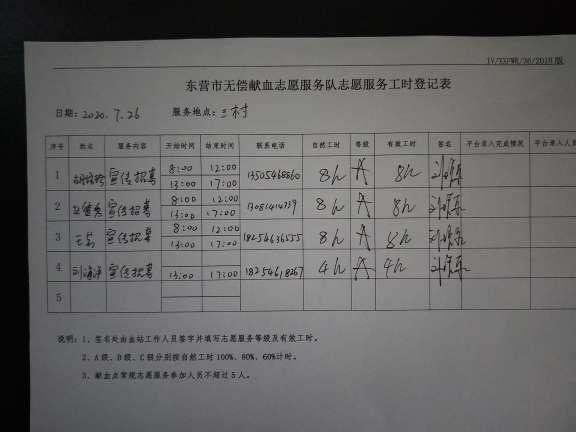 IV/XXFWR/36/2018版
东营市无偿献血志愿服务队志愿服务工时登记表
日期：2020.7.26 服务地点：三村
序号 姓名 服务内容 开始时间 结束时间 联系电话 自然工时 等级 有效工时 签名 平台录入完成情况 平台录入人员
1 宣传招募 8:00 12:00 13505468860 8h A 8h
13:00 17:00
2 宣传招募 8:00 12:00 13081414739 8h A 8h
13:00 17:00
3 宣传招募 8:00 12:00 18254636555 8h A 8h
13:00 17:00
4 宣传招募 13:00 17:00 18254618267 4h A 4h
5
说明：1、签名处由血站工作人员签字并填写志愿服务等级及有效工时。
2、A级、B级、C级分别按自然工时100%、80%、60%计时。
3、献血点常规志愿服务参加人员不超过5人。